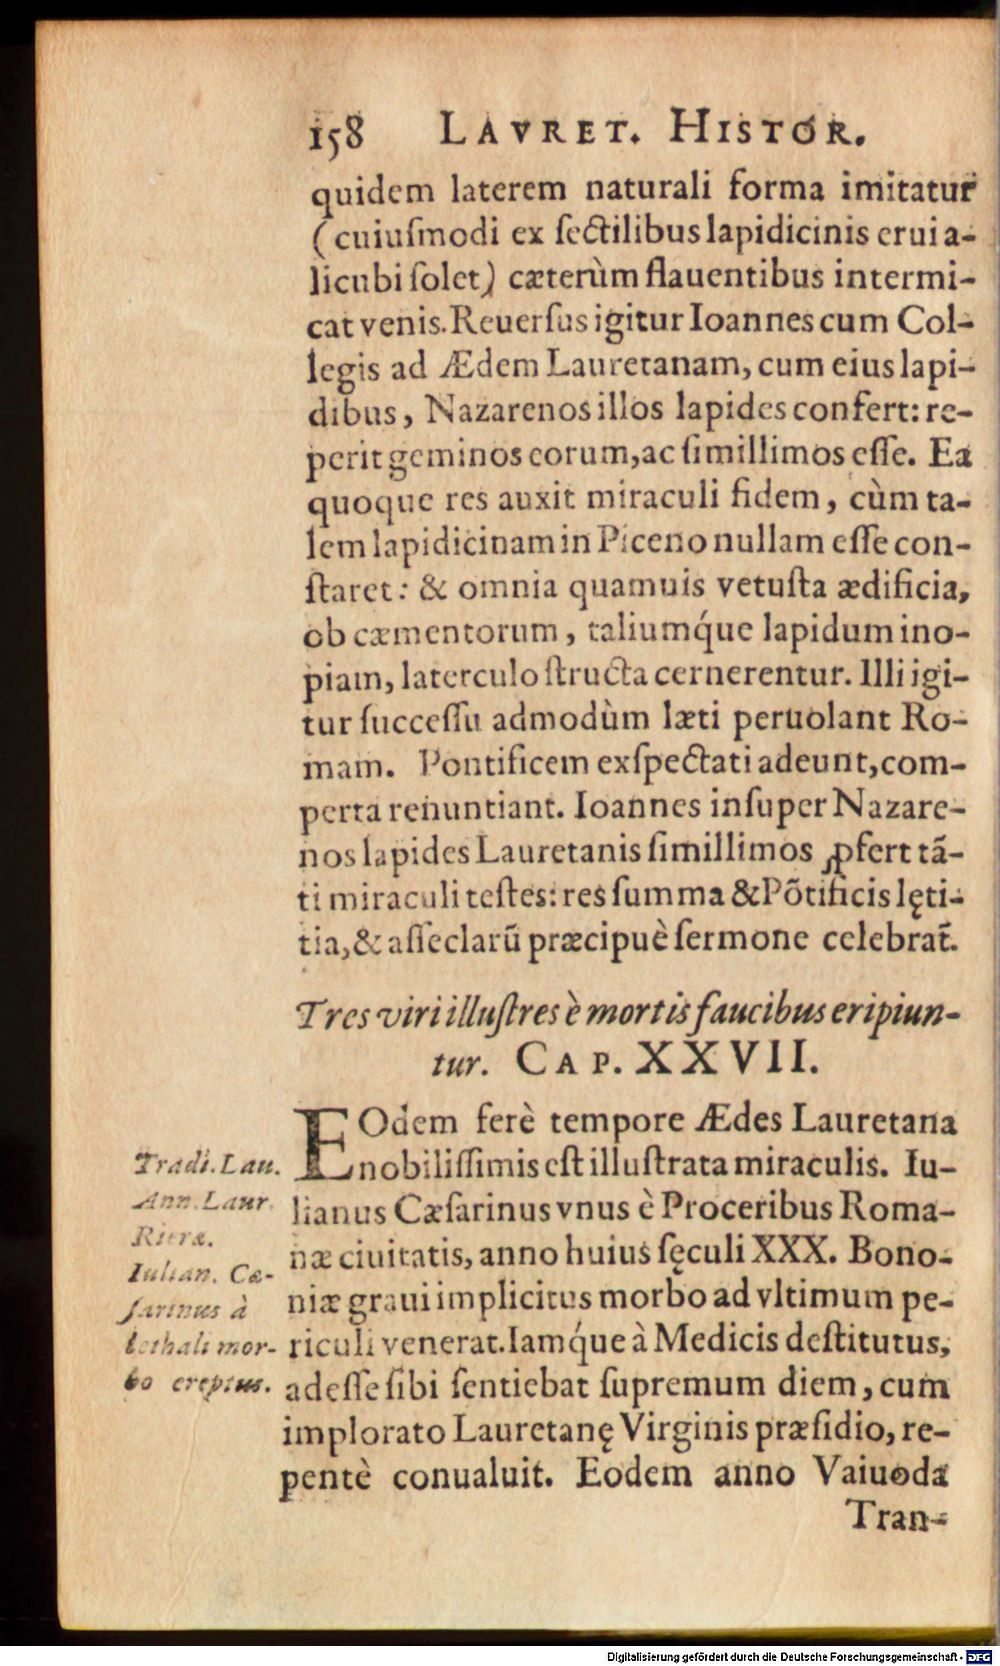 158 LAVRET. HISTOR.
quidem laterem naturali forma imitatur
(cuiuſmodi ex ſectilibus lapidicinis erui a-
licubi ſolet) cæterùm flauentibus intermi-
cat venis. Reuerſus igitur Ioannes cum Col-
legis ad Ædem Lauretanam, cum eius lapi-
dibus, Nazarenos illos lapides confert: re-
perit geminos eorum, ac ſimillimos eſſe. Ea
quoque res auxit miraculi fidem, cùm ta-
lem lapidicinam in Piceno nullam eſſe con-
ſtaret: & omnia quamuis vetuſta ædificia,
ob cæmentorum, taliumq́ue lapidum ino-
piam, laterculo ſtructa cernerentur. Illi igi-
tur ſucceſſu admodùm læti peruolant Ro-
mam. Pontificem exſpectati adeunt, com-
perta renuntiant. Ioannes inſuper Nazare-
nos lapides Lauretanis ſimillimos ꝓfert tã-
ti miraculi teſtes: res ſumma & Põtificis lęti-
tia, & aſſeclarũ præcipuè ſermone celebrat̃.
Tres viri illuſtres è mortis faucibus eripiun-
tur. CAP. XXVII.
EOdem ferè tempore Ædes Lauretana
nobiliſſimis eſt illuſtrata miraculis. Iu-
lianus Cæſarinus vnus è Proceribus Roma-
næ ciuitatis, anno huius ſęculi XXX. Bono-
niæ graui implicitus morbo ad vltimum pe-
riculi venerat. Iamq́ue à Medicis deſtitutus,
adeſſe ſibi ſentiebat ſupremum diem, cum
implorato Lauretanę Virginis præſidio, re-
pentè conualuit. Eodem anno Vaiuoda
Tran-
Tradi. Lau.
Ann. Laur.
Rieræ.
Iulian. Cæ-
ſarinus à
lethali mor-
bo ereptus.
Digitalisierung gefördert durch die Deutsche Forschungsgemeinschaft - DFG